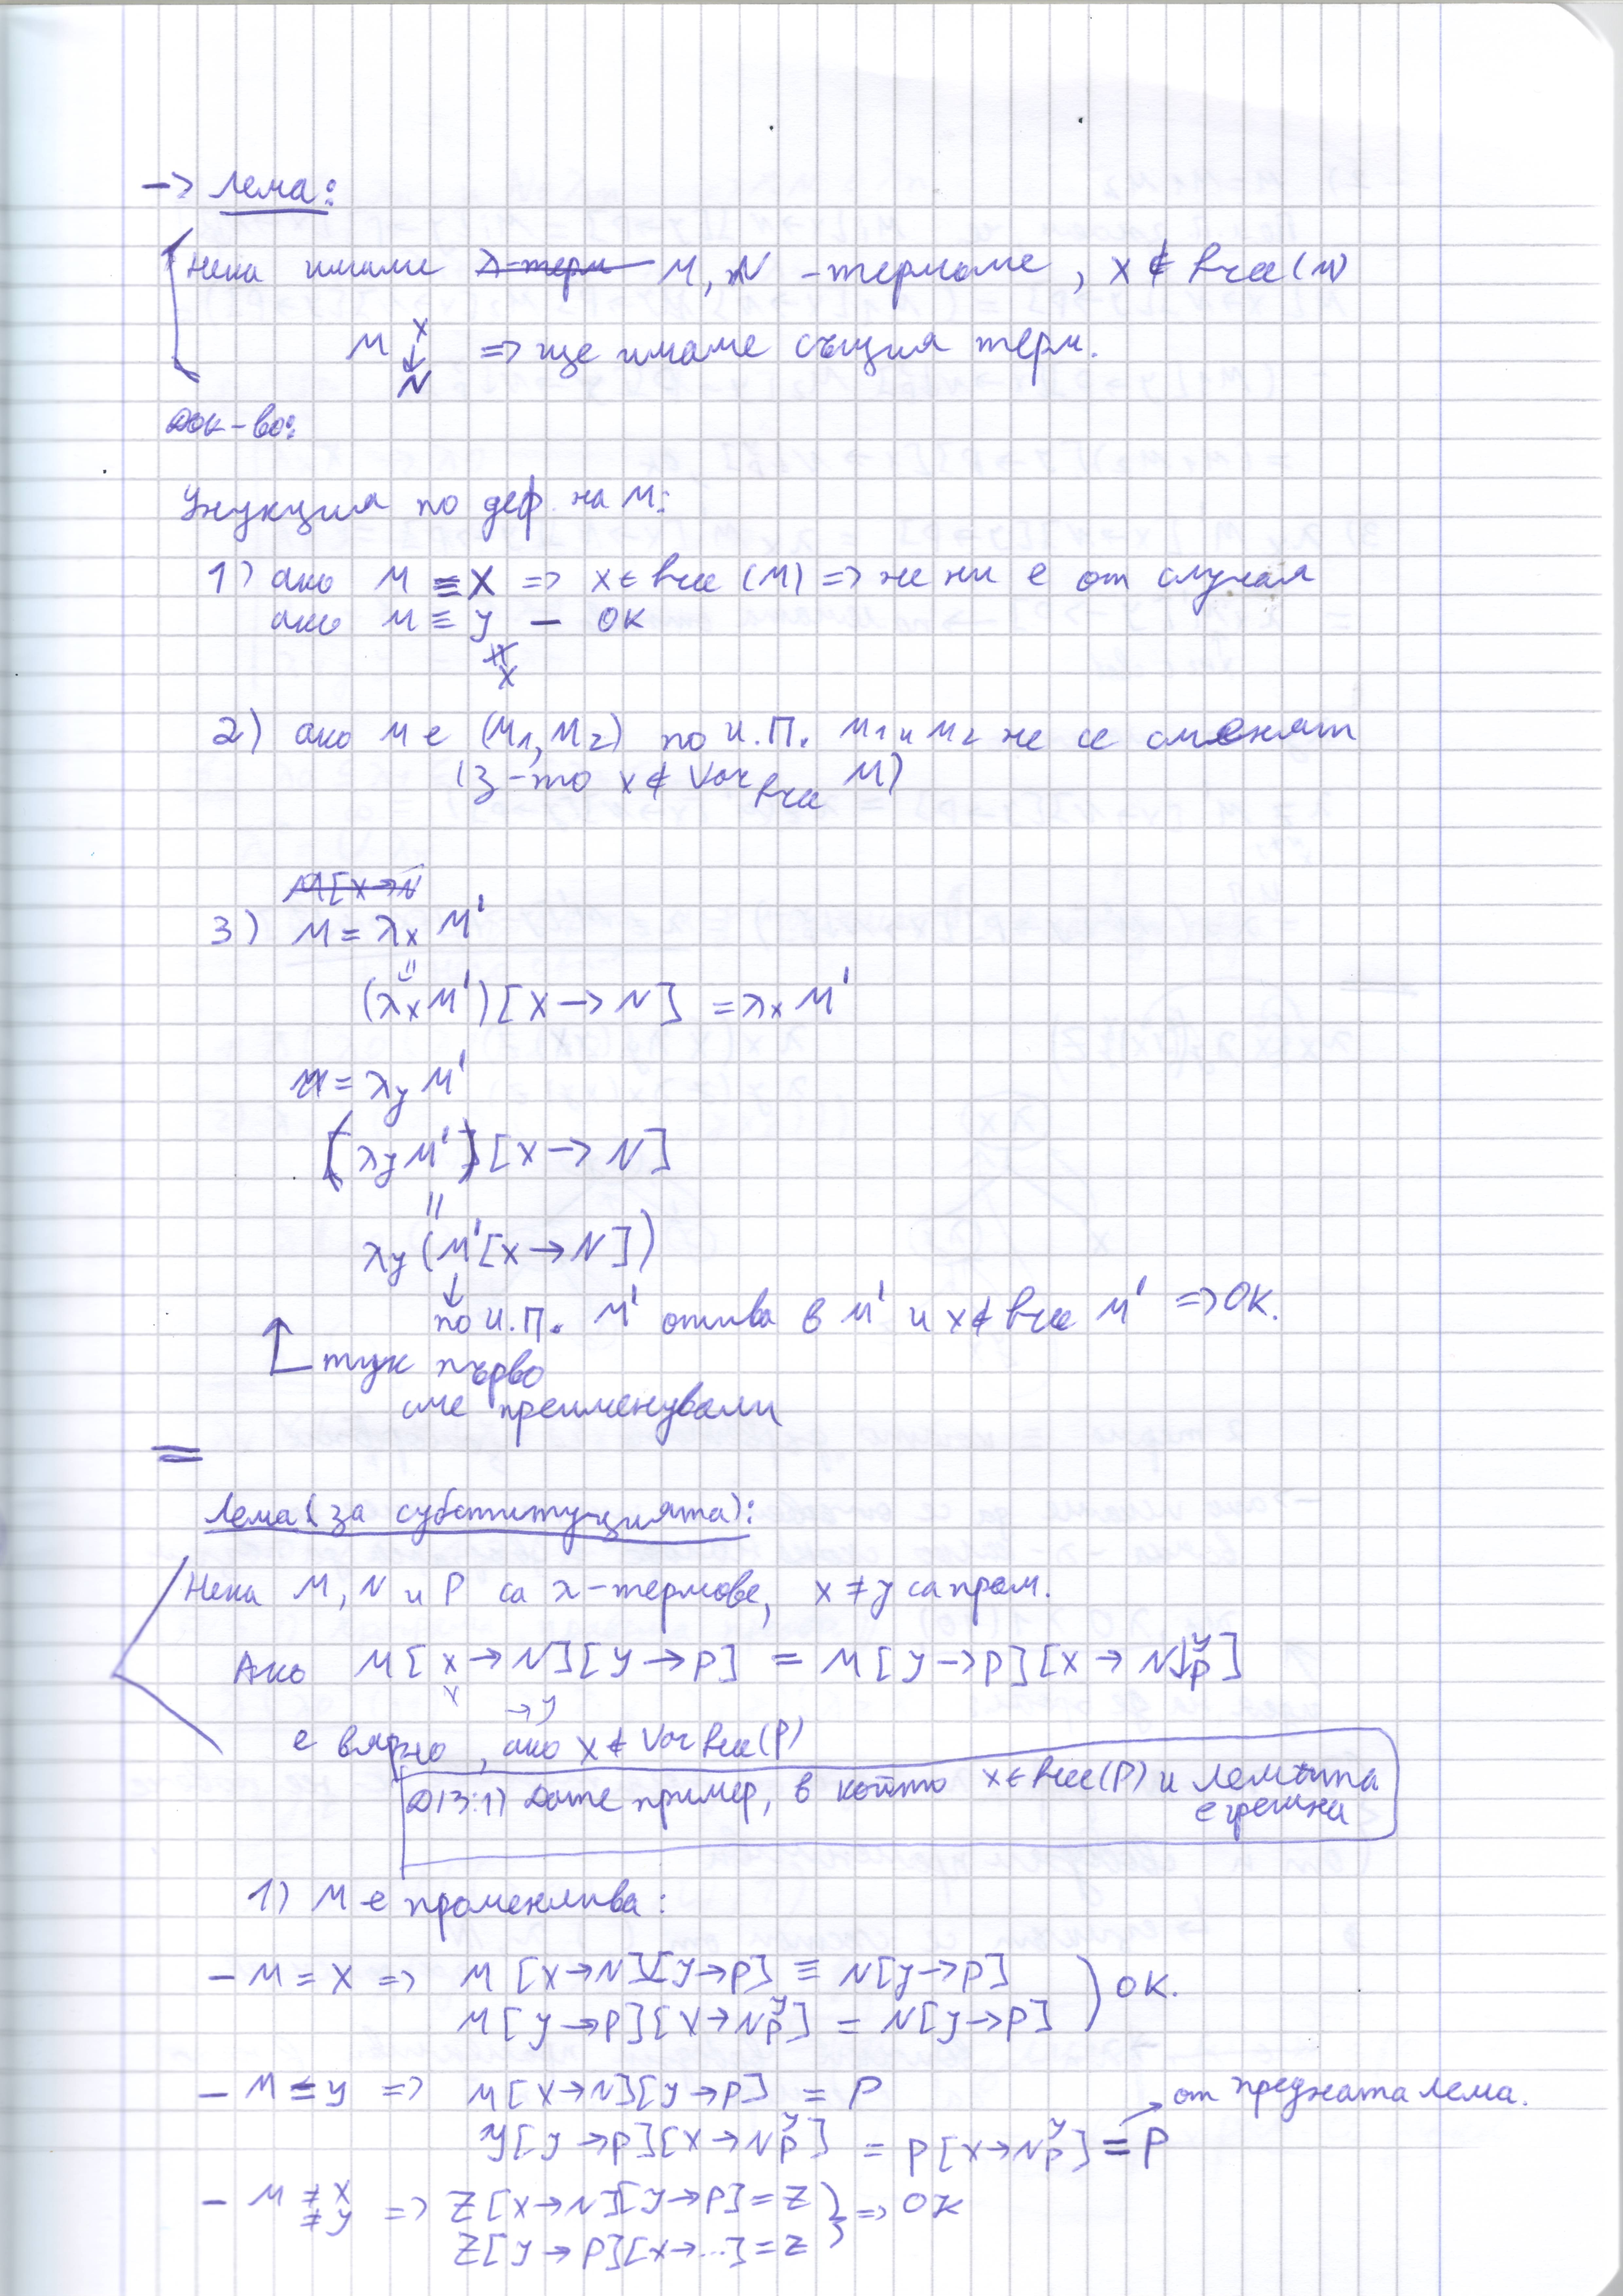 -> Лема:
Нека имаме λ-терм M, N - термове, x ∉ free(M)
M x↓N => ще имаме същия терм.
Док-во:
Индукция по деф. на M:
1) ако M ≡ x => x ∈ free (M) => не ни е от случая
ако M ≡ y - OK
≠
x
2) ако M е (M₁, M₂) по И.П. M₁ и M₂ не се сменят
(з-то x ∉ Var free M)
M[x→N
3) M = λx M'
"
(λx M')[x → N] = λx M'
M = λy M'
(λy M')[x → N]
"
λy (M'[x → N])
↓
по И.П. M' отива в M' и x ∉ free M' => OK.
тук първо
сме преименували
=
Лема (за субституцията):
Нека M, N и P са λ-термове, x ≠ y са пром.
Ако M[x → N][y → P] = M[y → P][x → N y P]
→ y
е вярно, ако x ∉ Var free(P)
ДЗ:1) Дайте пример, в който x ∈ free(P) и лемата
е грешна
1) M е променлива:
- M = x => M [x→N][y→P] ≡ N[y→P]
M[y→P][x→N y P] = N[y→P] ) OK.
- M ≡ y => M[x→N][y→P] = P
от предната лема.
y[y→P][x→N y P] = P[x→N y P] = P
- M ≠ x ≠ y => z[x→N][y→P] = z } => OK
z[y→P][x→...] = z